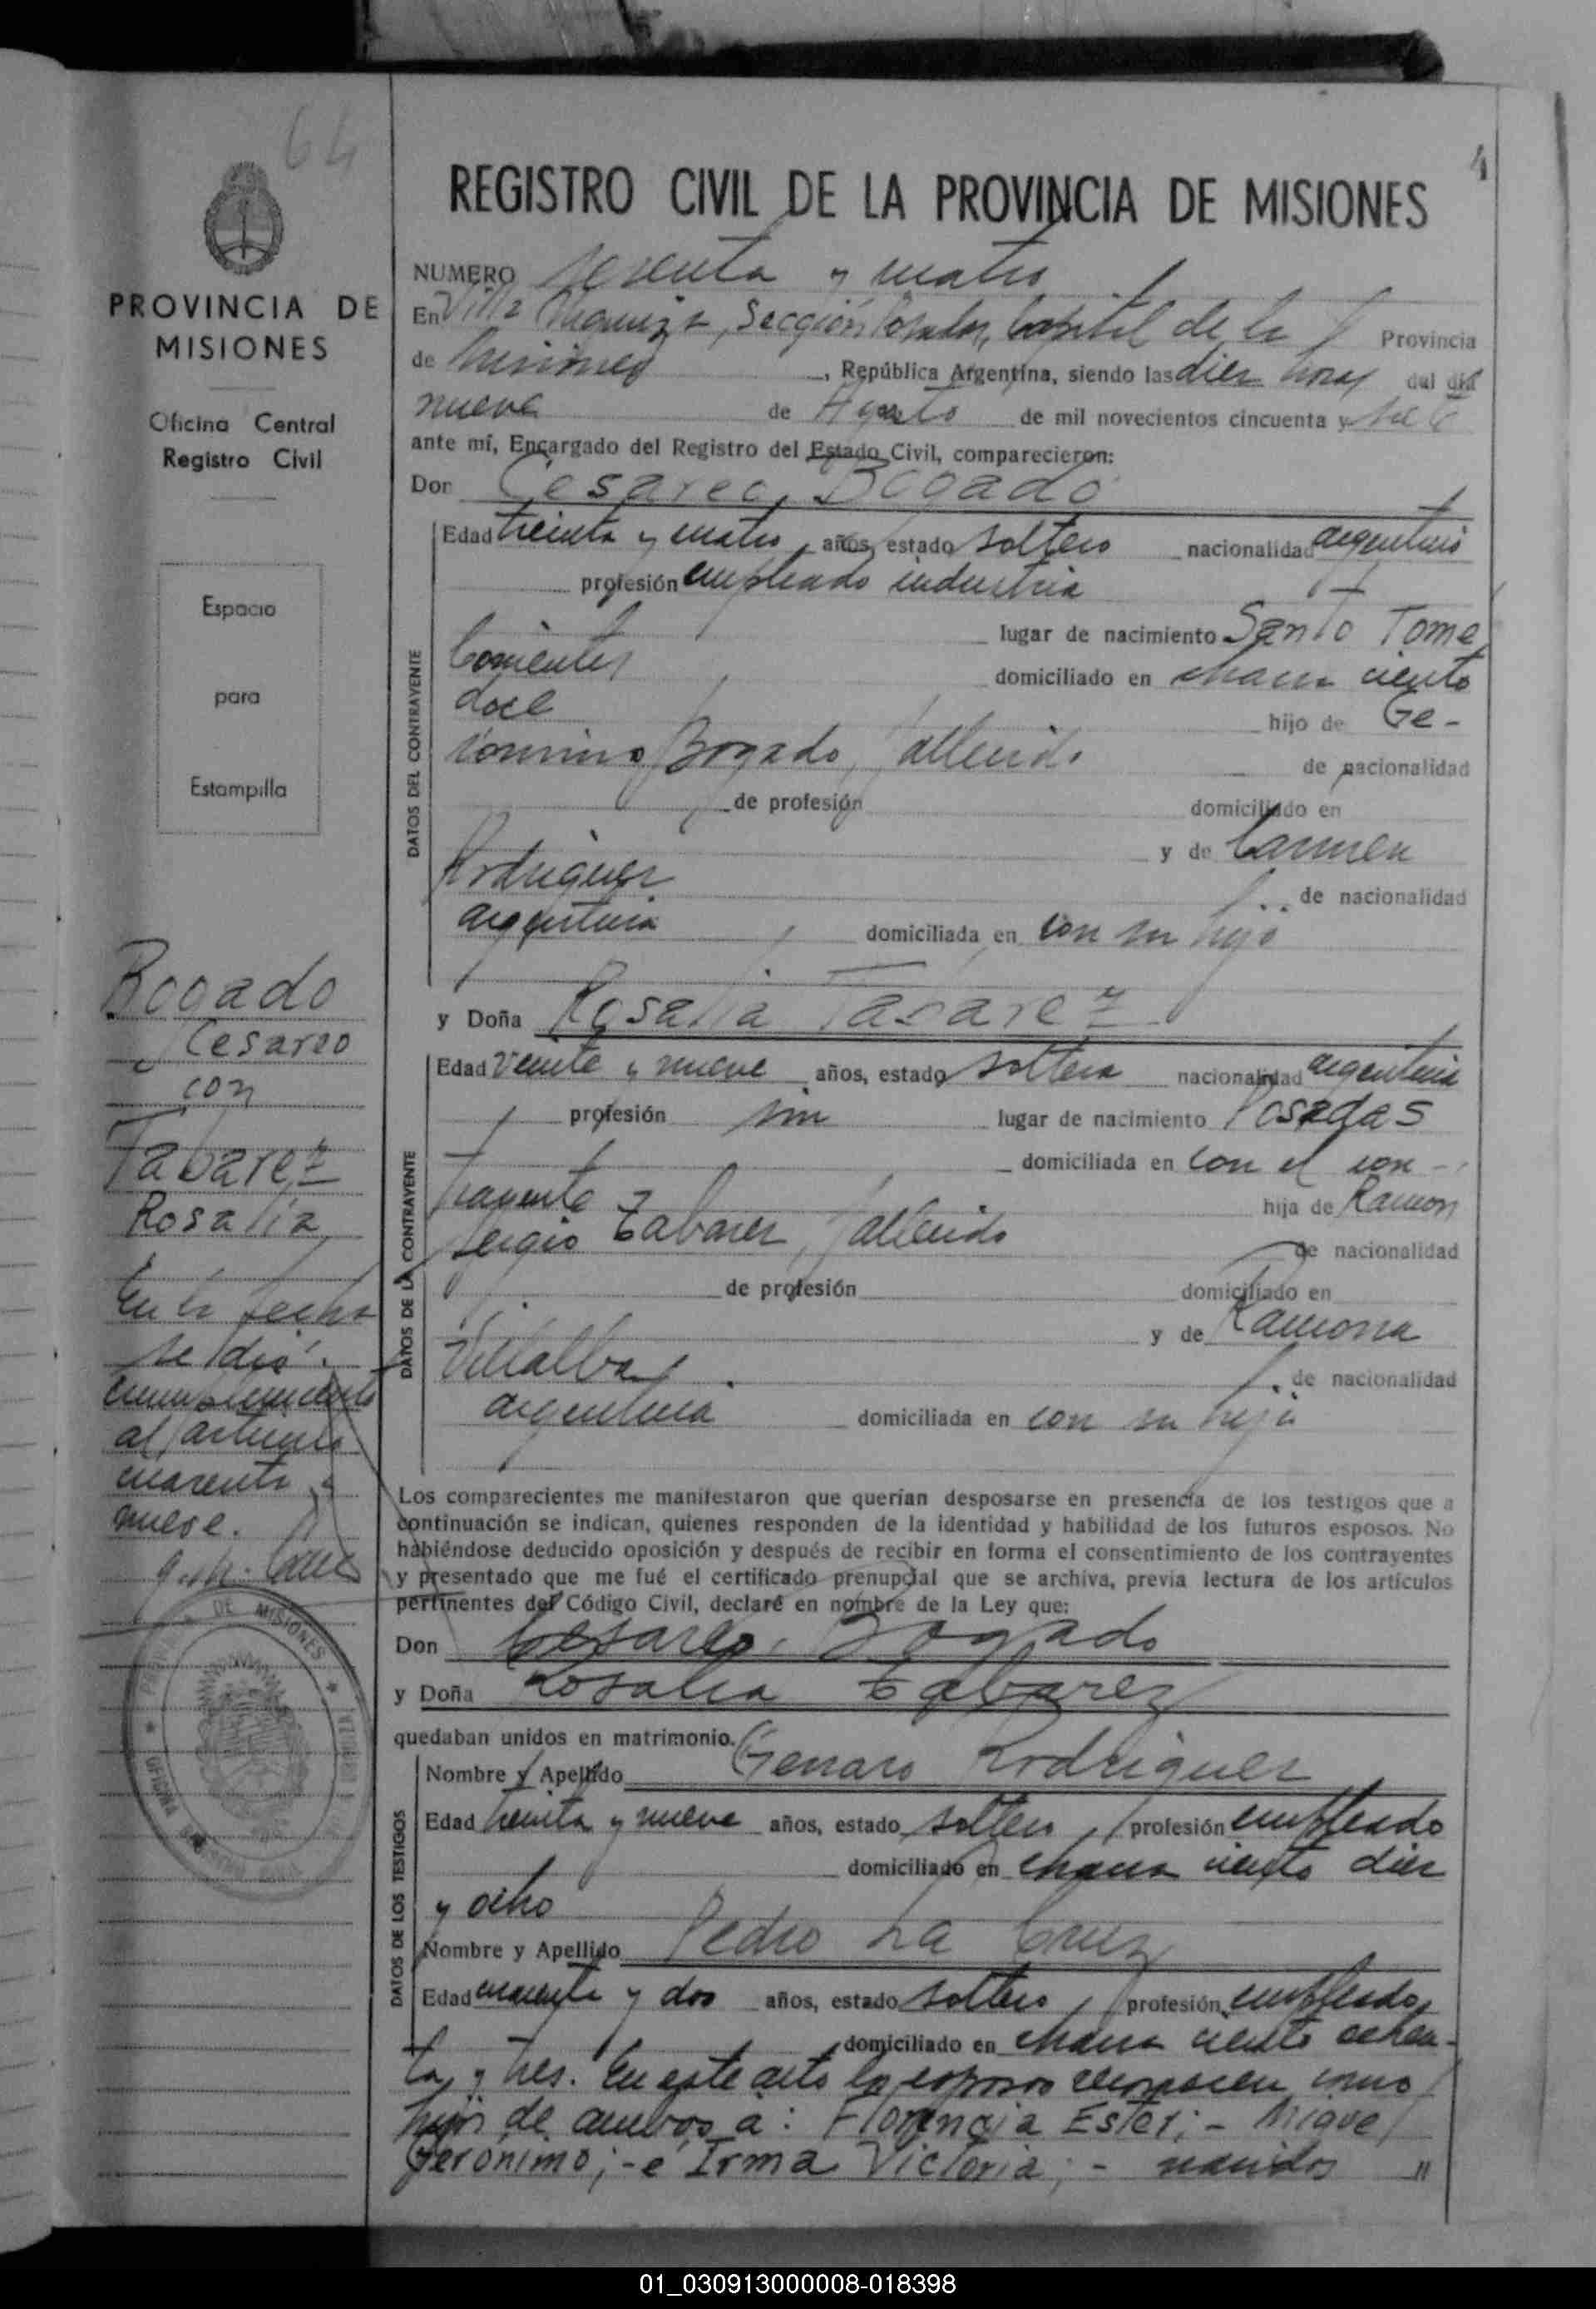 64
REGISTRO CIVIL DE LA PROVINCIA DE MISIONES
PROVINCIA DE
MISIONES
Oficina Central
Registro Civil
Espacio
para
Estampilla
Bogado
Cesareo
con
Tabarez
Rosalía
En la fecha
se dió
cumplimiento
al artículo
cuarenta y
nueve.
NUMERO sesenta y cuatro
En Villa Urquiza, Sección Posadas, Capital de la Provincia
de Misiones, República Argentina, siendo las diez horas del día
nueve de Agosto de mil novecientos cincuenta y siete
ante mí, Encargado del Registro del Estado Civil, comparecieron:
Don Cesareo Bogado
DATOS DEL CONTRAYENTE
Edad treinta y cuatro años, estado soltero nacionalidad argentino
profesión empleado industria
lugar de nacimiento Santo Tome
Corrientes domiciliado en chacra ciento
doce hijo de Ge-
ronimo Bogado, fallecido de nacionalidad
de profesión domiciliado en
y de Carmen
Rodriguez de nacionalidad
argentina domiciliada en con su hijo
y Doña Rosalia Tabarez
DATOS DE LA CONTRAYENTE
Edad veinte y nueve años, estado soltera nacionalidad argentina
profesión sin lugar de nacimiento Posadas
domiciliada en con el con-
trayente hija de Ramon
Sergio Tabarez, fallecido de nacionalidad
de profesión domiciliado en
y de Ramona
Villalba de nacionalidad
argentina domiciliada en con su hija
Los comparecientes me manifestaron que querían desposarse en presencia de los testigos que a
continuación se indican, quienes responden de la identidad y habilidad de los futuros esposos. No
habiéndose deducido oposición y después de recibir en forma el consentimiento de los contrayentes
y presentado que me fué el certificado prenupcial que se archiva, previa lectura de los artículos
pertinentes del Código Civil, declaré en nombre de la Ley que:
Don Cesareo Bogado
y Doña Rosalia Tabarez
quedaban unidos en matrimonio.
DATOS DE LOS TESTIGOS
Nombre y Apellido Genaro Rodriguez
Edad treinta y nueve años, estado soltero, profesión empleado
domiciliado en chacra ciento diez
y ocho
Nombre y Apellido Pedro La Cruz
Edad cuarenta y dos años, estado soltero, profesión empleado,
domiciliado en chacra ciento ochen-
ta y tres. En este acto los esposos reconocen como
hijos de ambos a: Florencia Ester; - Miguel
Geronimo; - e Irma Victoria; - nacidos "
01_030913000008-018398